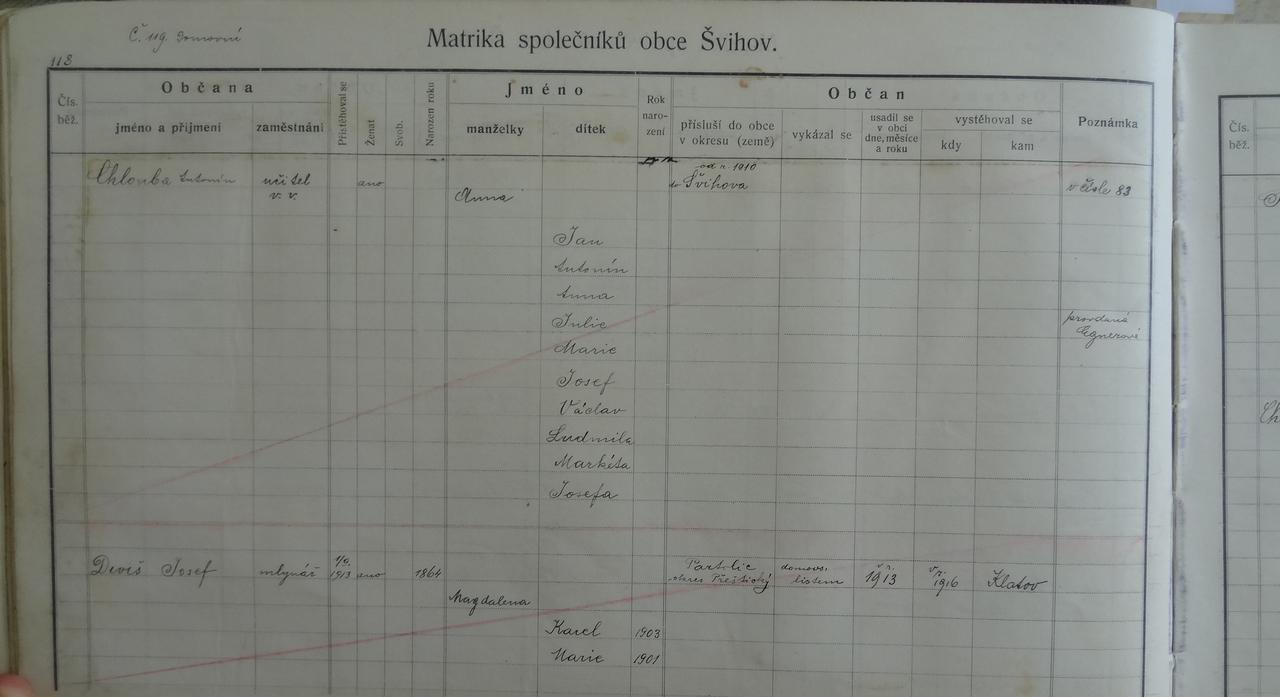 Č. 119. Domovní
Matrika společníků obce Švihov.
113
Čís. běž.
Občana
jméno a přijmení
zaměstnání
Přistěhoval se
Ženat
Svob.
Narozen roku
Jméno
manželky
dítek
Rok naro- zení
Občan
přísluší do obce v okresu (země)
vykázal se
usadil se v obci dne, měsíce a roku
vystěhoval se
kdy
kam
Poznámka
Čís. běž.
Chlouba Antonín učitel v. v. ano od r. 1910 do Švihova v čísle 83
Anna
Jan
Antonín
Anna
Julie provdaná
Marie
Josef
Václav
Ludmila
Markéta
Josefa
Deviš Josef mlynář 1913 ano 1864 okres Přeštický domovs. listem 1913 1916 Klatov
Magdalena
Karel 1903
Marie 1901